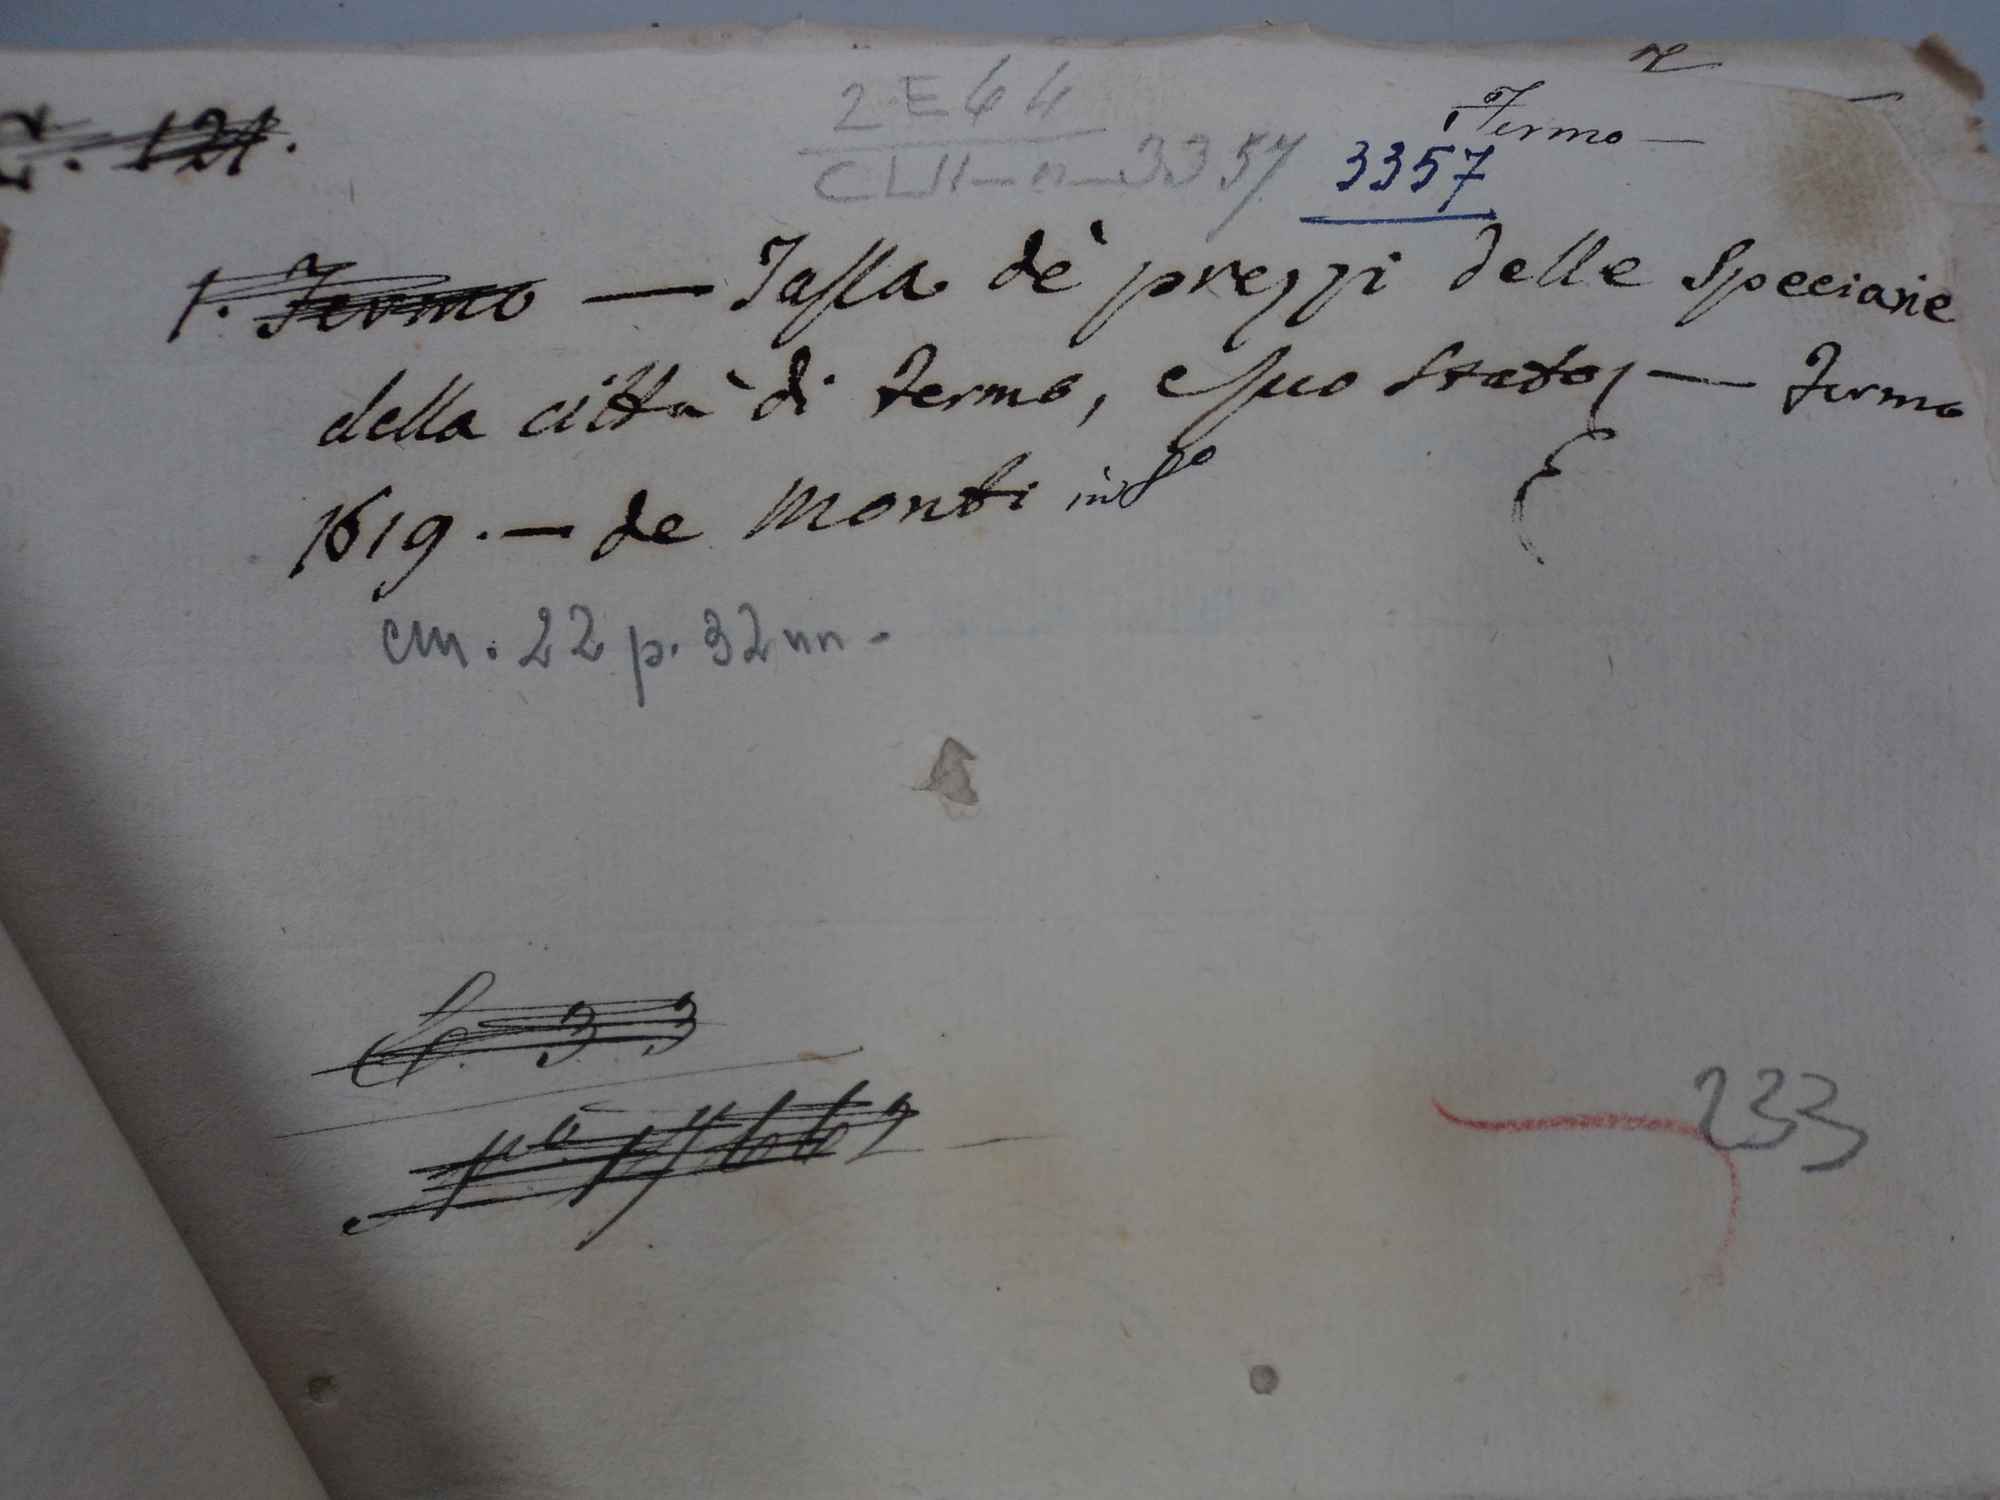 121.
2 E 44
Fermo —
CLII - n - 3357
3357
1. Fermo — Tassa de' prezzi delle Speciarie
della città di Fermo, e suo Stato — Fermo
1619. — de Monti in 8º
cm. 22 p. 32 nn.
C. 33
233